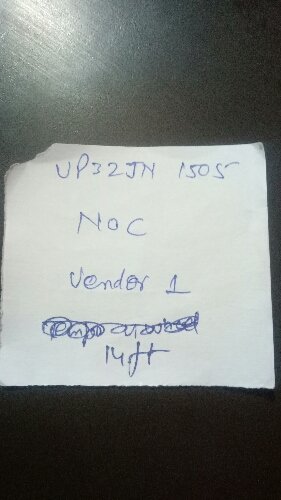 UP32JN 1505
NOC
Vender 1
14ft